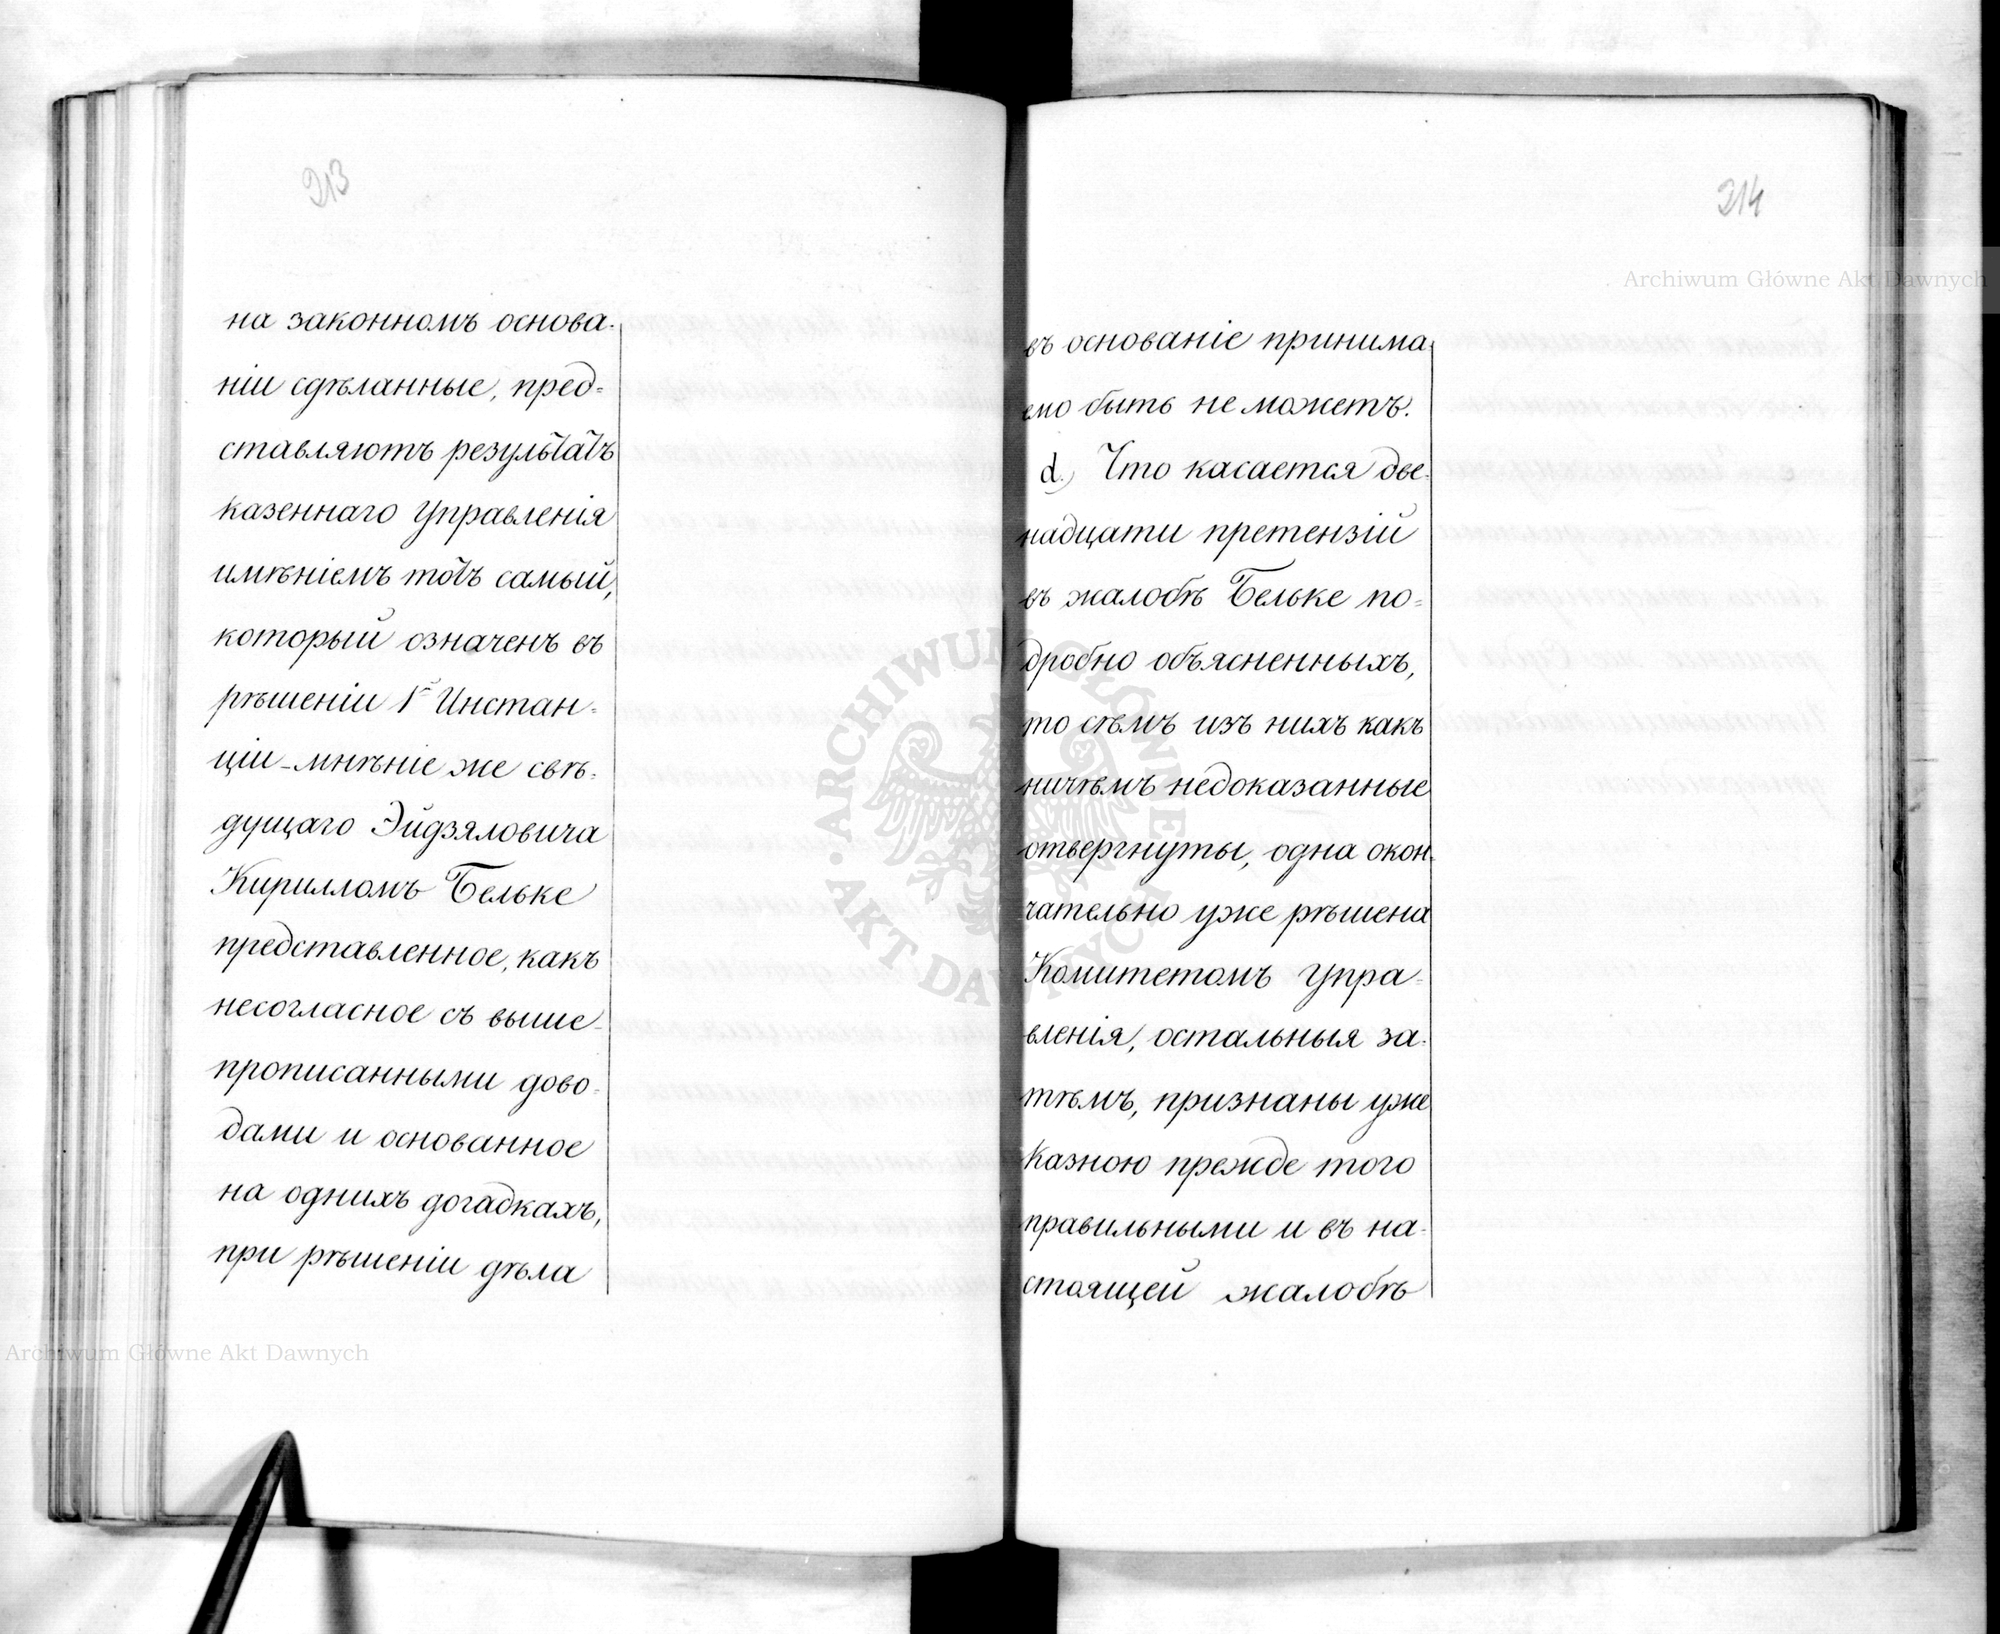 213
на законномъ основа-
ніи сдѣланные, пред-
ставляютъ результатъ
казеннаго Управленія
имѣніемъ тотъ самый,
который означенъ въ
рѣшеніи 1й Инстан-
ціи - мнѣніе же свѣ-
дущаго Эйдзяловича
Кирилломъ Бельке
представленное, какъ
несогласное съ выше-
прописанными дово-
дами и основанное
на однихъ догадкахъ,
при рѣшеніи дѣла
214
въ основаніе принима-
емо быть не можетъ.
d.) Что касается две-
надцати претензій
въ жалобѣ Бельке по-
дробно объясненныхъ,
то сѣмъ изъ нихъ какъ
ничѣмъ недоказанные
отвергнуты, одна окон-
чательно уже рѣшена
Комитетомъ Упра-
вленія, остальныя за-
тѣмъ, признаны уже
Казною прежде того
правильными и въ на-
стоящей жалобѣ
Archiwum Główne Akt Dawnych
ARCHIWUM GŁÓWNE AKT DAWNYCH
Archiwum Główne Akt Dawnych